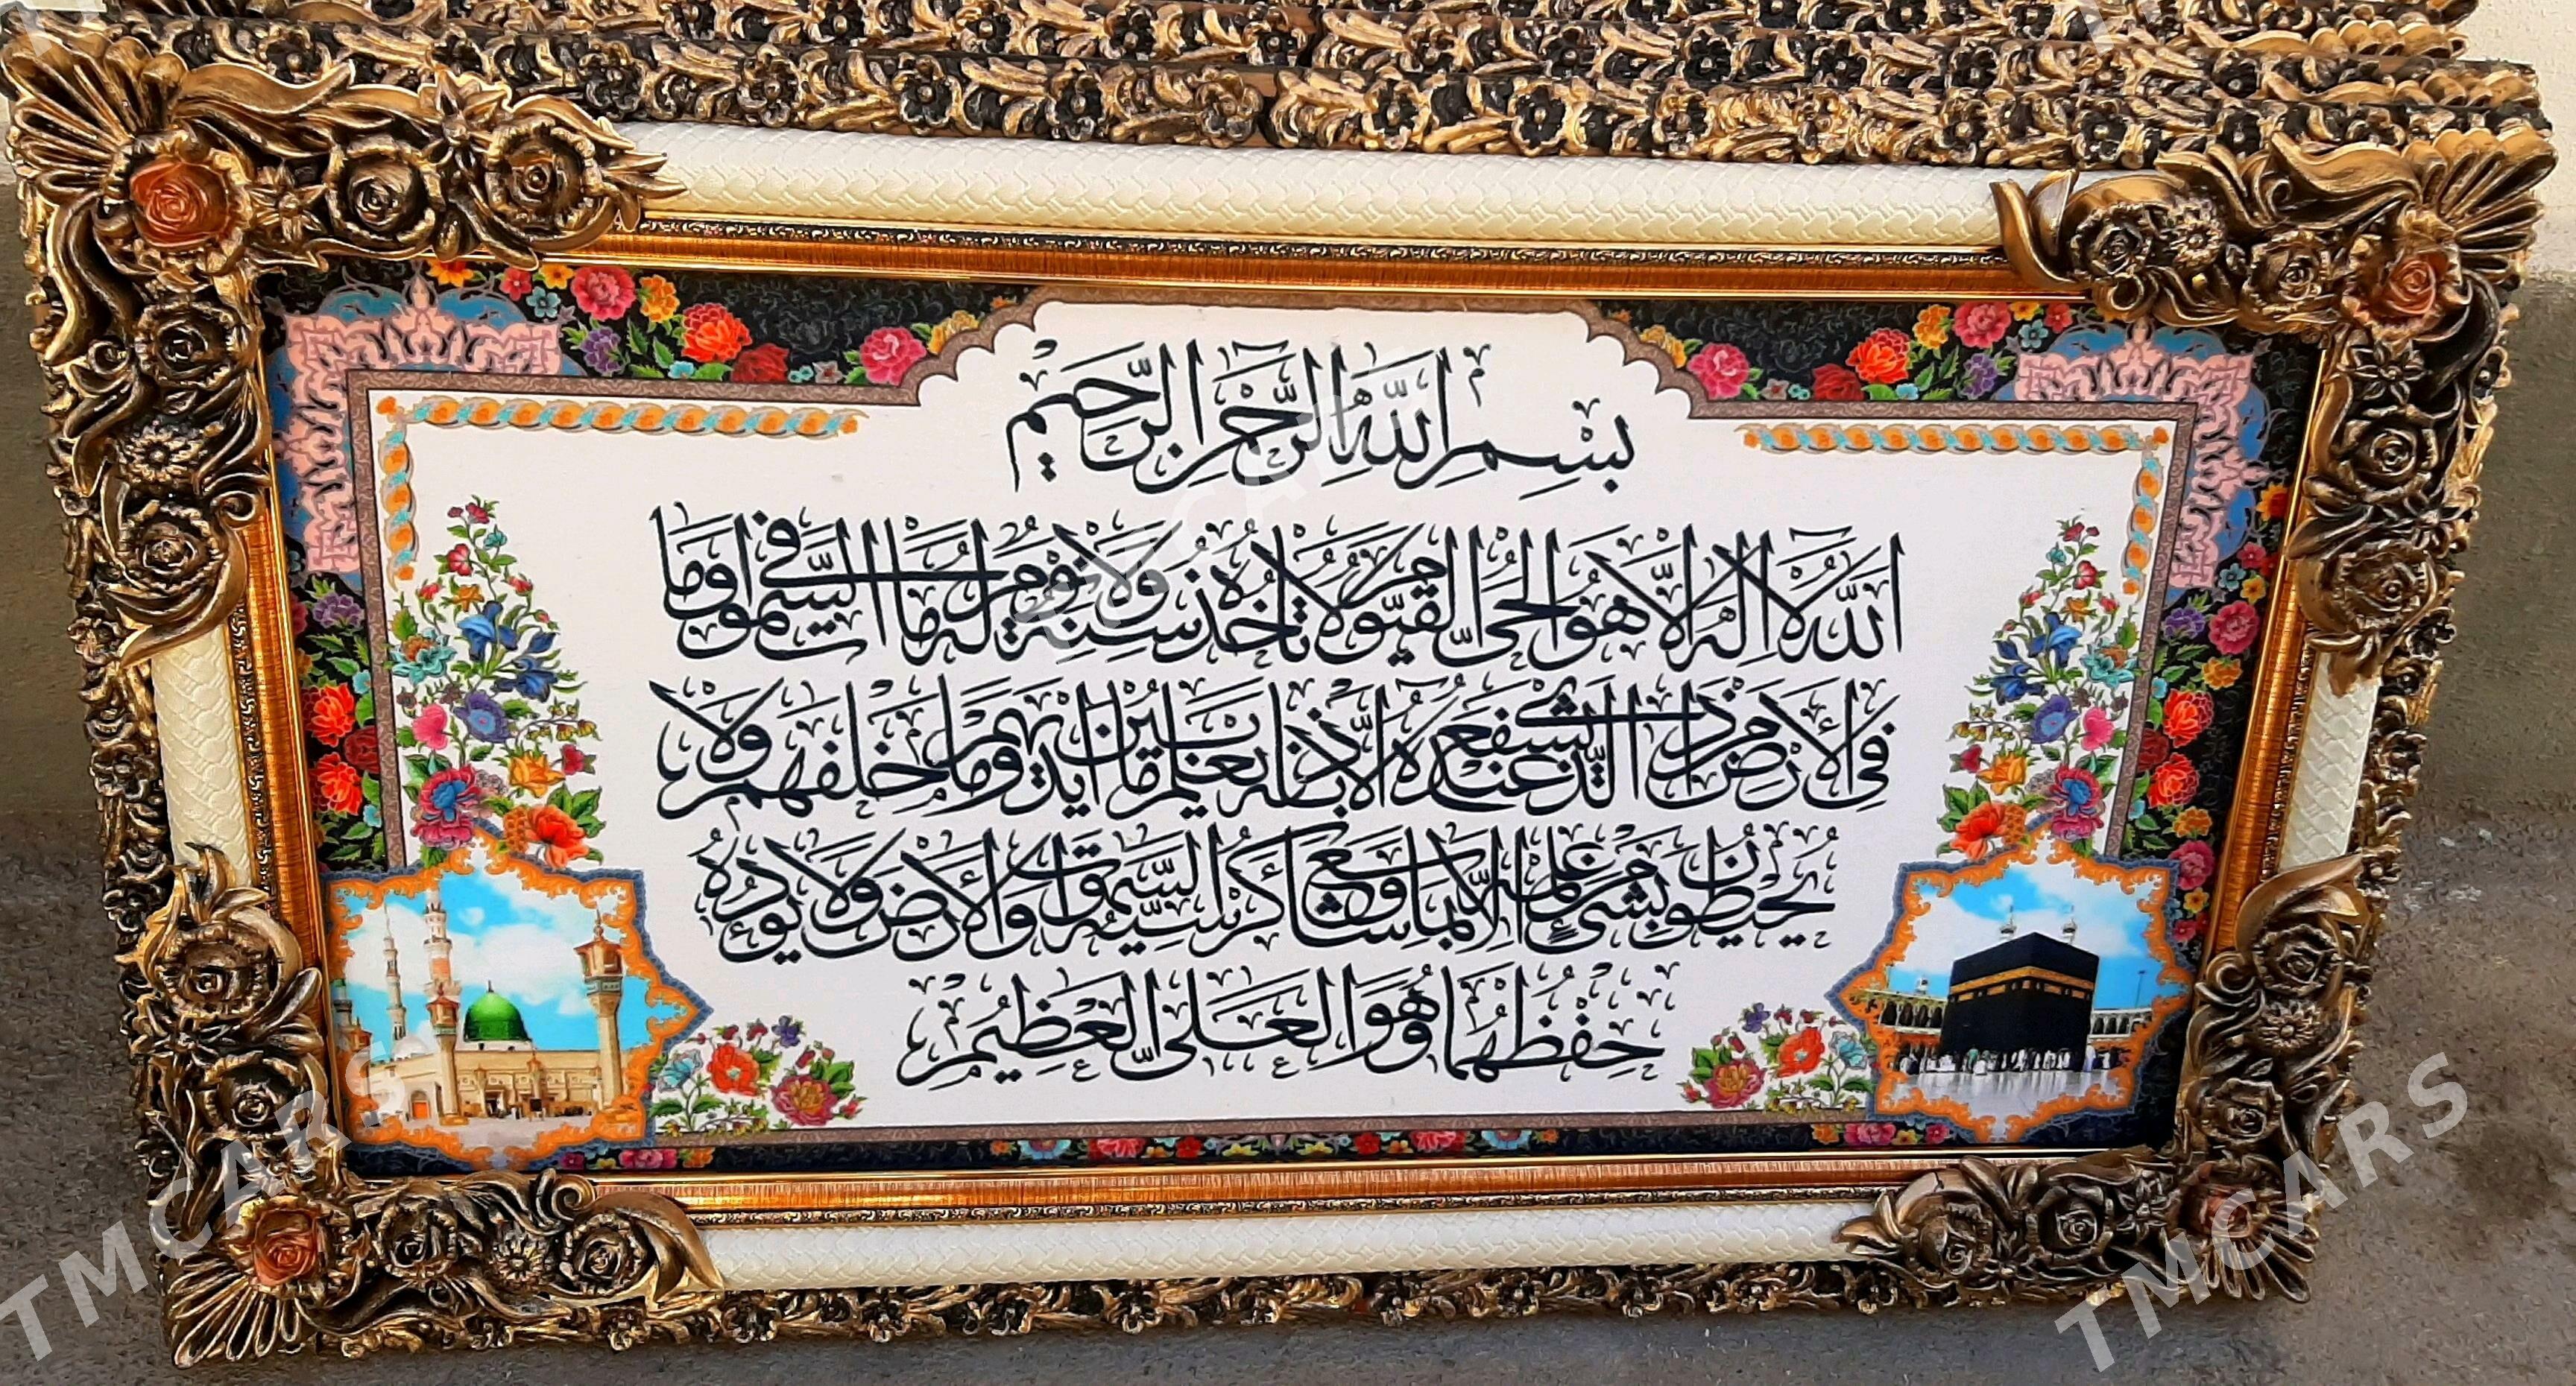 بِسْمِ اللَّهِ الرَّحْمَٰنِ الرَّحِيمِ
اللَّهُ لَا إِلَٰهَ إِلَّا هُوَ الْحَيُّ الْقَيُّومُ لَا تَأْخُذُهُ سِنَةٌ وَلَا نَوْمٌ لَهُ مَا فِي السَّمَاوَاتِ وَمَا
فِي الْأَرْضِ مَنْ ذَا الَّذِي يَشْفَعُ عِنْدَهُ إِلَّا بِإِذْنِهِ يَعْلَمُ مَا بَيْنَ أَيْدِيهِمْ وَمَا خَلْفَهُمْ وَلَا
يُحِيطُونَ بِشَيْءٍ مِنْ عِلْمِهِ إِلَّا بِمَا شَاءَ وَسِعَ كُرْسِيُّهُ السَّمَاوَاتِ وَالْأَرْضَ وَلَا يَئُودُهُ
حِفْظُهُمَا وَهُوَ الْعَلِيُّ الْعَظِيمُ
TMCARS
TMCARS
TMCARS